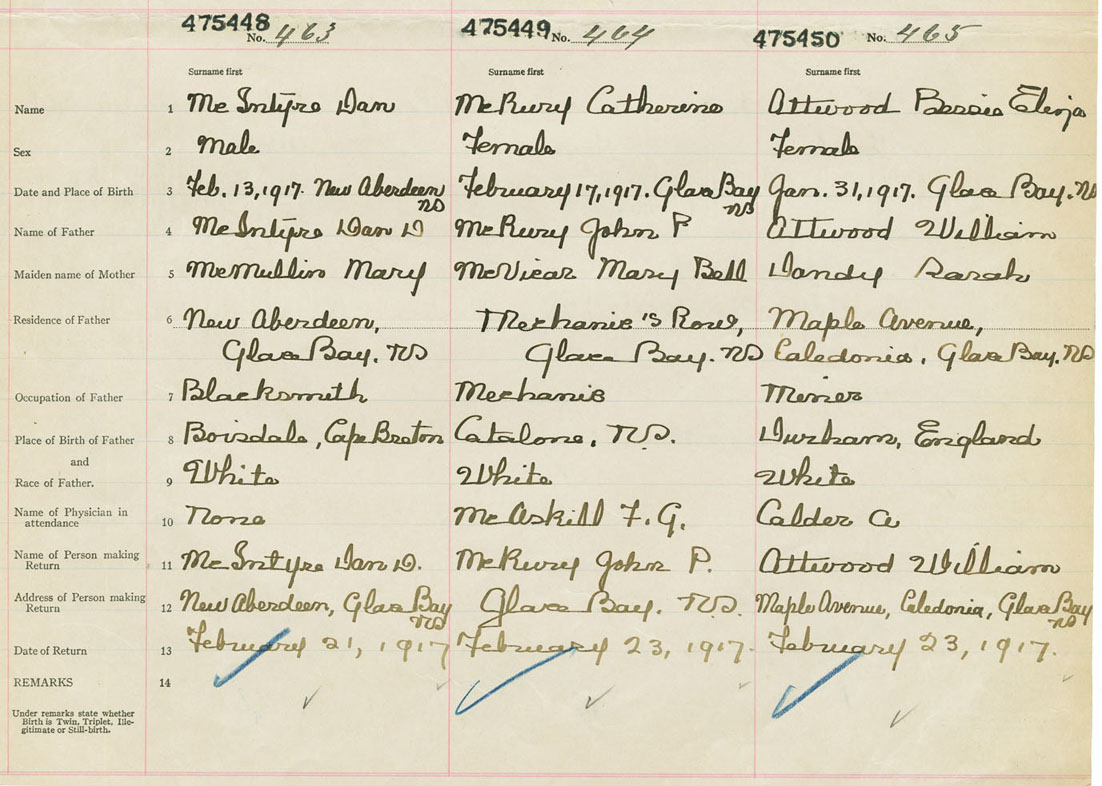 475448 No. 463 475449 No. 464 475450 No. 465
Surname first Surname first Surname first
Name 1 McIntyre Dan McRury Catherine Attwood Bessie
Sex 2 Male Female Female
Date and Place of Birth 3 Feb. 13, 1917. New Aberdeen NS February 17, 1917. Glace Bay NS Jan. 31, 1917. Glace Bay. NS
Name of Father 4 McIntyre Dan D McRury John P Attwood William
Maiden name of Mother 5 McMullin Mary McVicar Mary Bell Dandy Sarah
Residence of Father 6 New Aberdeen, Mechanic's Row, Maple Avenue,
Glace Bay. NS Glace Bay. NS Caledonia, Glace Bay. NS
Occupation of Father 7 Blacksmith Mechanic Miner
Place of Birth of Father 8 Boisdale, Cape Breton Catalone, NS. Durham, England
and
Race of Father. 9 White White White
Name of Physician in
attendance 10 None McAskill F. G. Calder A
Name of Person making
Return 11 McIntyre Dan D. McRury John P. Attwood William
Address of Person making
Return 12 New Aberdeen, Glace Bay NS Glace Bay. NS. Maple Avenue, Caledonia, Glace Bay NS
Date of Return 13 February 21, 1917 February 23, 1917. February 23, 1917.
REMARKS 14
Under remarks state whether
Birth is Twin, Triplet, Ille-
gitimate or Still-birth.